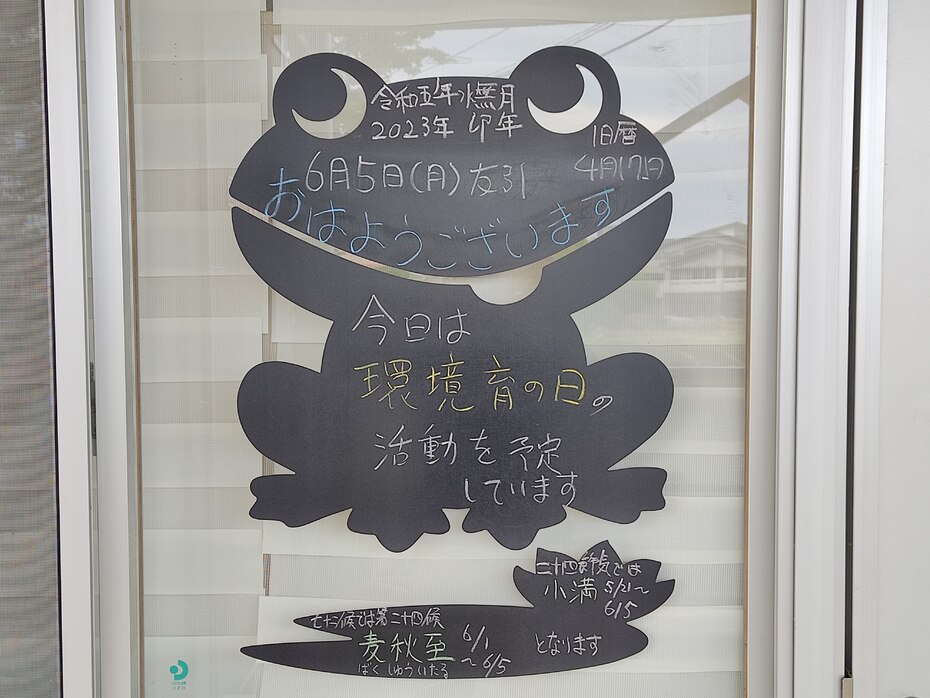 令和五年水無月
2023年 卯年
旧暦
4月17日
6月5日(月)友引
おはようございます
今日は
環境育の日の
活動を予定
しています
二十四節気では
小満 5/21〜
6/5
七十二候では第二十四候
麦秋至 6/1
〜6/5
ばくしゅういたる
となります